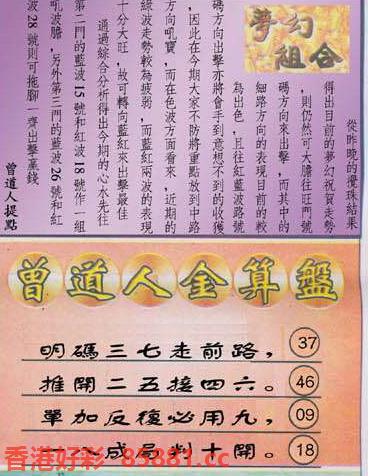 夢幻
組合
從昨晚的攪珠結果
得出目前的夢幻祝賀走勢
,則仍然可大膽往旺門號
碼方向來出擊,而其中的
細路方向的表現目前的較
為出色,且往紅藍波路號
碼方向出擊亦將會手到意想不到的收獲
,因此在今期大家不防將重點放到中路
方向吼寶,而在色波方面看來,近期的
綠波走勢較為疲弱,而藍紅兩波的表現
十分大旺,故可轉向藍紅來出擊最佳
通過綜合分析得出今期的心水先往
第二門的藍波15號和紅波18號作一組
吼波膽,另外第三門的藍波26號和紅
波28號則可拖腳一齊出擊贏錢
曾道人提點
曾道人全算盤
明碼三七走前路, 37
推開二五接四六。 46
單加反復必用九, 09
成局判十開。 18
香港好彩-85881.cc